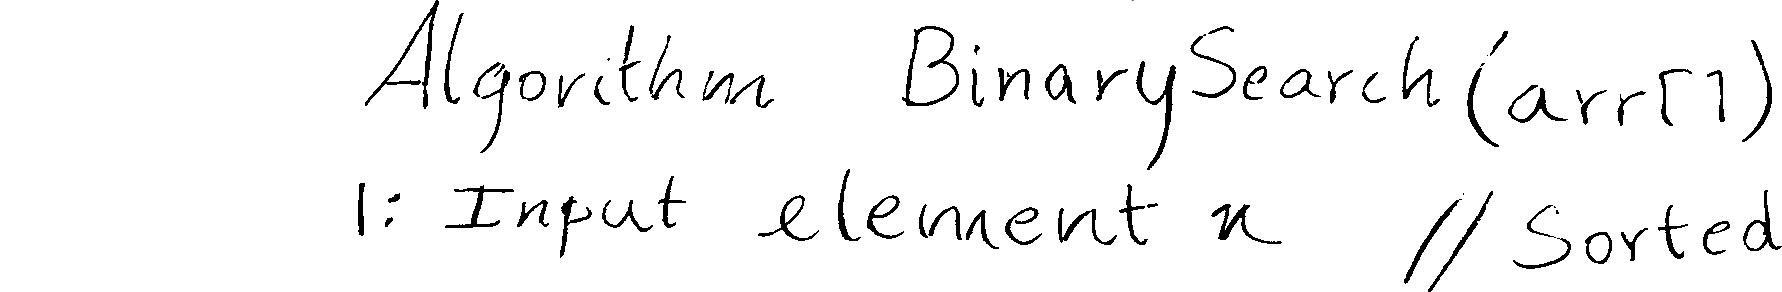 Algorithm BinarySearch(arr[])
1: Input element x // Sorted